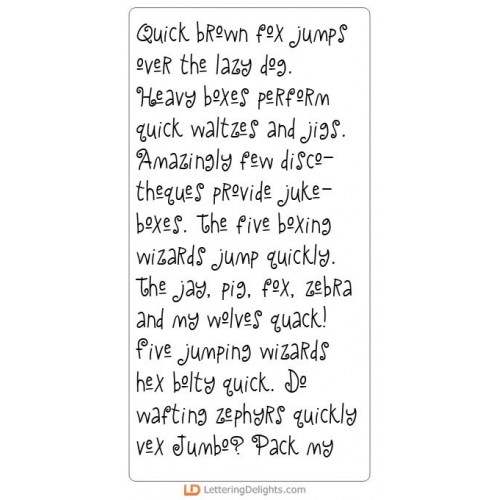 Quick brown fox jumps
over the lazy dog.
Heavy boxes perform
quick waltzes and jigs.
Amazingly few disco-
theques provide juke-
boxes. The five boxing
wizards jump quickly.
The jay, pig, fox, zebra
and my wolves quack!
five jumping wizards
hex bolty quick. Do
wafting zephyrs quickly
vex Jumbo? Pack my
LD LetteringDelights.com